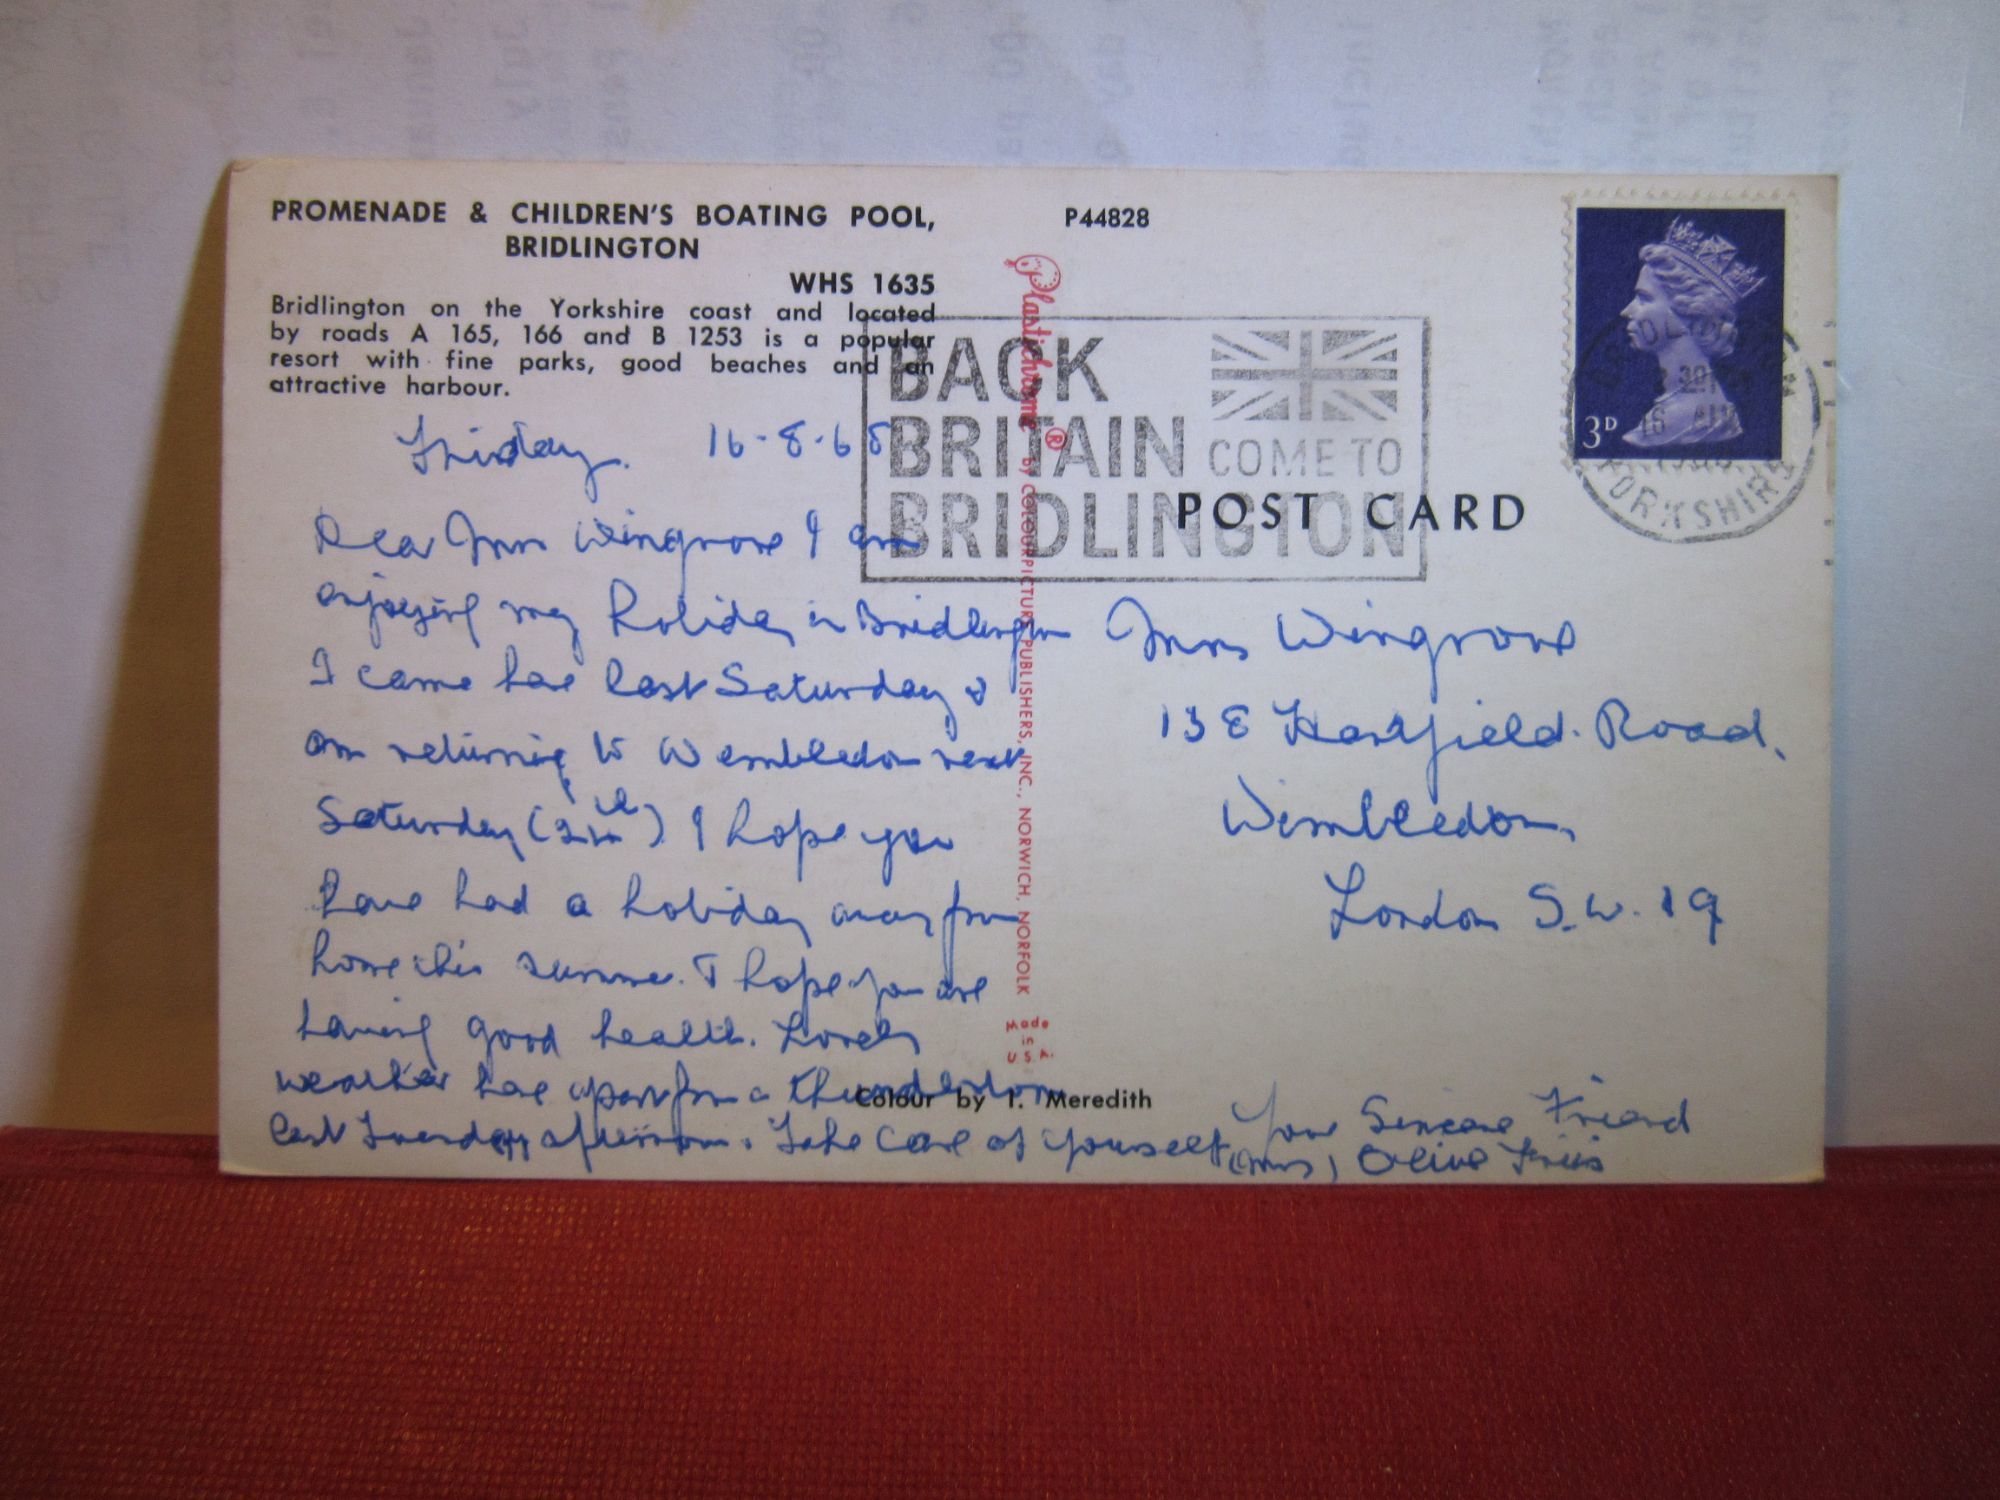 PROMENADE & CHILDREN'S BOATING POOL,
BRIDLINGTON
WHS 1635
Bridlington on the Yorkshire coast and located
by roads A 165, 166 and B 1253 is a popular
resort with fine parks, good beaches and an
attractive harbour.
P44828
Friday. 16-8-68
Dear Mrs Wingrove I am
enjoying my holiday in Bridlington
I came here last Saturday &
am returning to Wimbledon next
Saturday (24th). I hope you
have had a holiday away from
home this summer. I hope you are
having good health. Lovely
weather here apart from a thunderstorm
last Tuesday afternoon. Take care of yourself
Your Sincere Friend
(Mrs) Olive
Plastichrome ® by COLOURPICTURE PUBLISHERS, INC., NORWICH, NORFOLK
Made
in
U.S.A.
Colour by T. Meredith
BACK
BRITAIN
COME TO
BRIDLINGTON
POST CARD
3D
YORKSHIRE
Mrs Wingrove
Road,
Wimbledon,
London S.W. 19